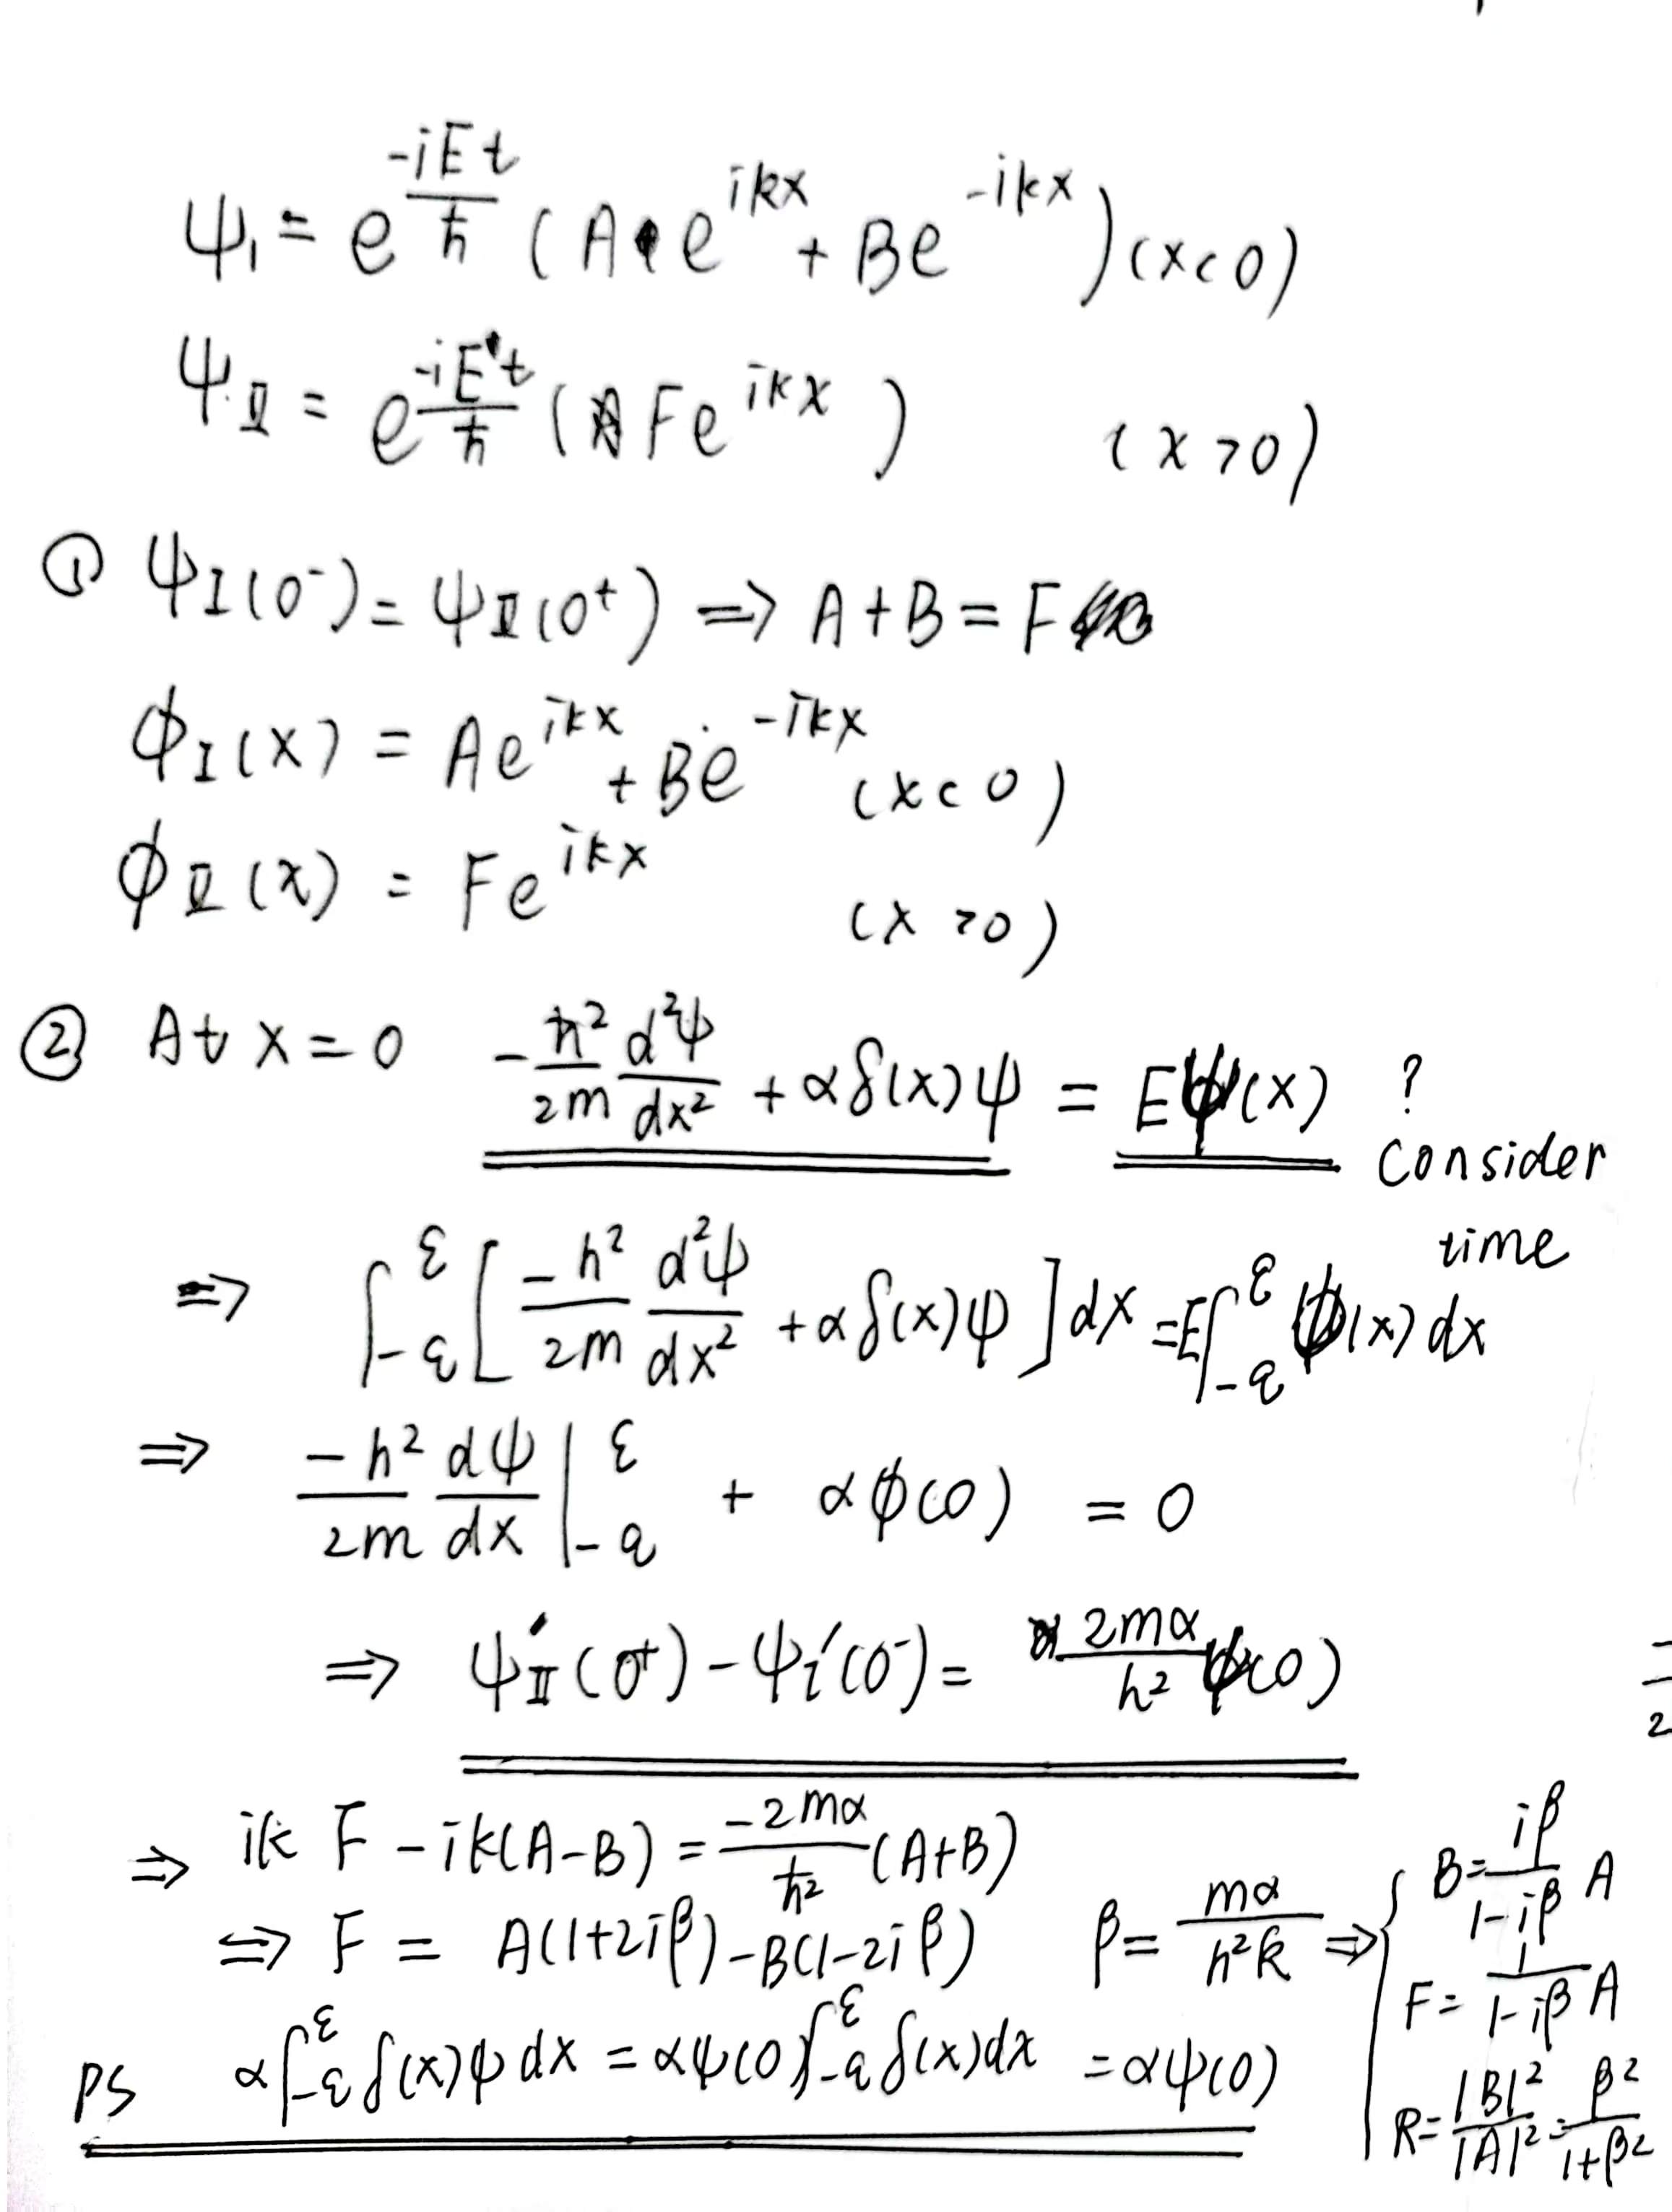 ψ₁ = e^(-iEt/ħ) (A e^(ikx) + Be^(-ikx)) (x<0)
ψ_II = e^(-iEt/ħ) (Fe^(ikx)) (x>0)
① ψ_I(0⁻) = ψ_II(0⁺) ⇒ A+B = F
φ_I(x) = Ae^(ikx) + Be^(-ikx) (x<0)
φ_II(x) = Fe^(ikx) (x>0)
② At x=0 -ħ²/2m d²ψ/dx² + αδ(x)ψ = Eψ(x) ?
consider
time
⇒ ∫_{-ε}^{ε} [-h²/2m d²ψ/dx² + αδ(x)ψ] dx = E∫_{-ε}^{ε} ψ(x) dx
⇒ -h²/2m dψ/dx |_{-ε}^{ε} + αϕ(0) = 0
⇒ ψ'_II(0⁺) - ψ_i'(0⁻) = 2mα/h² ψ(0)
⇒ ik F - ik(A-B) = -2mα/ħ² (A+B)
⇒ F = A(1+2iβ) - B(1-2iβ) β = mα/h²k ⇒ {
B = iβ/(1-iβ) A
F = 1/(1-iβ) A
R = |B|²/|A|² = β²/(1+β²)
PS α∫_{-ε}^{ε} δ(x)ψ dx = αψ(0)∫_{-ε}^{ε} δ(x)dx = αψ(0)